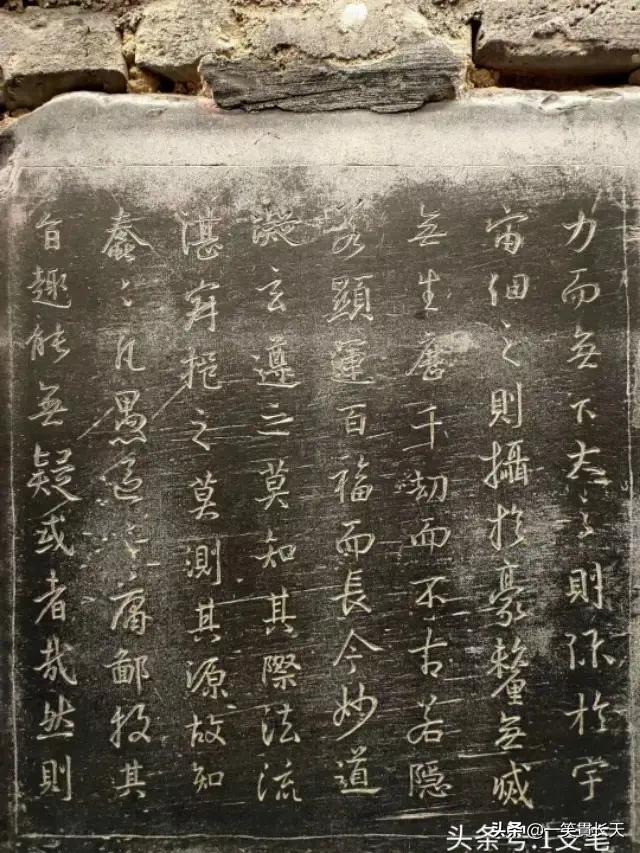 力而無下大之則弥於宇
宙細之則攝於豪釐無滅
無生歷千劫而不古若隱
若顯運百福而長今妙道
凝玄遵之莫知其際法流
湛寂挹之莫測其源故知
蠢〻凡愚區〻庸鄙投其
旨趣能無疑或者哉然則
头条 @一笑貫长天
头条号:1支笔